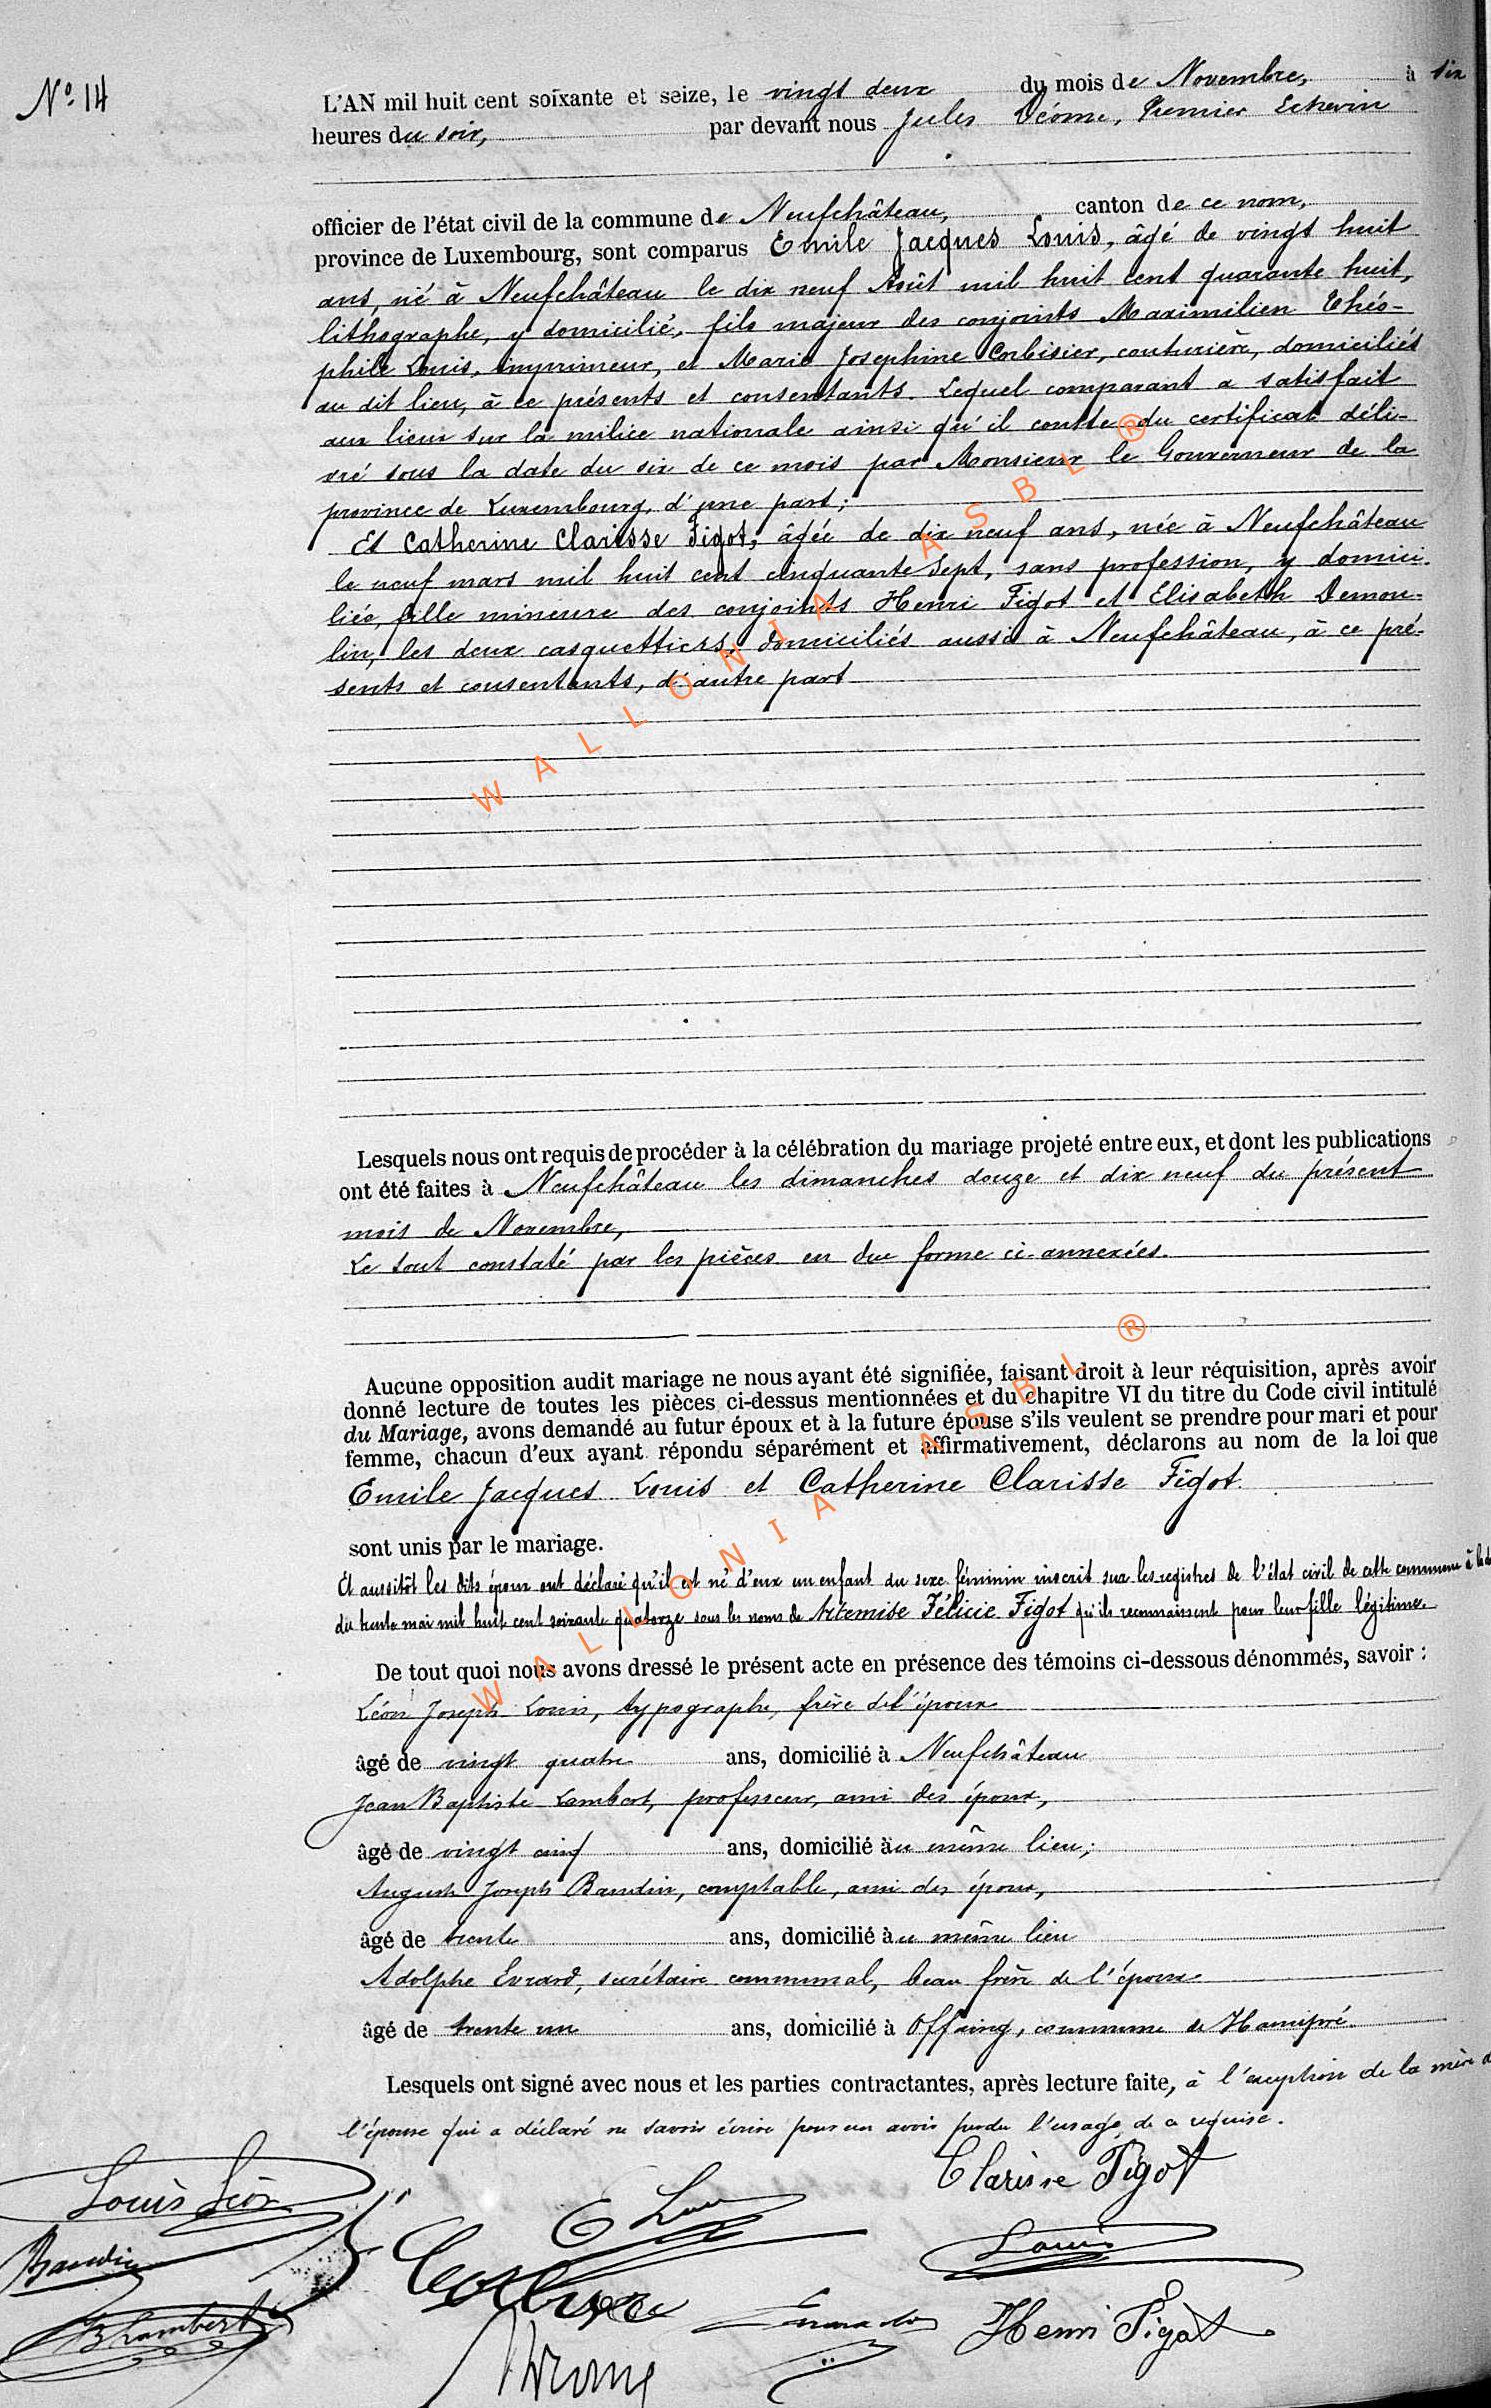 N° 14
L'AN mil huit cent soixante et seize, le vingt deux du mois de Novembre, à six
heures du soir, par devant nous Jules Déôme, Premier Echevin
officier de l'état civil de la commune de Neufchâteau, canton de ce nom,
province de Luxembourg, sont comparus Emile Jacques Louis, âgé de vingt huit
ans, né à Neufchâteau le dix neuf Août mil huit cent quarante huit,
lithographe, y domicilié, fils majeur des conjoints Maximilien Théo-
phile Louis, imprimeur, et Marie Josephine Corbisier, couturière, domiciliés
au dit lieu, à ce présents et consentants. Lequel comparant a satisfait
aux lieux sur la milice nationale ainsi qu'il conste du certificat déli-
vré sous la date du six de ce mois par Monsieur le Gouverneur de la
province de Luxembourg, d'une part;
Et Catherine Clarisse Figot, âgée de dix neuf ans, née à Neufchâteau
le neuf mars mil huit cent cinquante sept, sans profession, y domici-
liée, fille mineure des conjoints Henri Figot et Elisabeth Demou-
lin, les deux casquettiers, domiciliés aussi à Neufchâteau, à ce pré-
sents et consentants, d'autre part
Lesquels nous ont requis de procéder à la célébration du mariage projeté entre eux, et dont les publications
ont été faites à Neufchâteau les dimanches douze et dix neuf du présent
mois de Novembre,
Le tout constaté par les pièces en due forme ci-annexées.
Aucune opposition audit mariage ne nous ayant été signifiée, faisant droit à leur réquisition, après avoir
donné lecture de toutes les pièces ci-dessus mentionnées et du chapitre VI du titre du Code civil intitulé
du Mariage, avons demandé au futur époux et à la future épouse s'ils veulent se prendre pour mari et pour
femme, chacun d'eux ayant répondu séparément et affirmativement, déclarons au nom de la loi que
Emile Jacques Louis et Catherine Clarisse Figot.
sont unis par le mariage.
Et aussitôt les dits époux ont déclaré qu'il est né d'eux un enfant du sexe féminin inscrit sur les registres de l'état civil de cette commune à la
du trente mai mil huit cent soixante quatorze sous les noms de Artémise Félicie Figot qu'ils reconnaissent pour leur fille légitime.
De tout quoi nous avons dressé le présent acte en présence des témoins ci-dessous dénommés, savoir :
Léon Joseph Louis, typographe, frère de l'époux
âgé de vingt quatre ans, domicilié à Neufchâteau
Jean Baptiste Lambert, professeur, ami des époux,
âgé de vingt cinq ans, domicilié au même lieu;
Auguste Joseph Baudin, comptable, ami des époux,
âgé de trente ans, domicilié au même lieu
Adolphe Evrard, secrétaire communal, beau frère de l'époux
âgé de trente un ans, domicilié à Offaing, commune de Hamipré.
Lesquels ont signé avec nous et les parties contractantes, après lecture faite, à l'exception de la mère de
l'épouse qui a déclaré ne savoir écrire pour en avoir perdu l'usage, de ce requise.
Clarisse Figot
Louis Léon
E Louis
Baudin
Louis
Lambert
Henri Figot
WALLONIA ASBL ®
WALLONIA ASBL ®